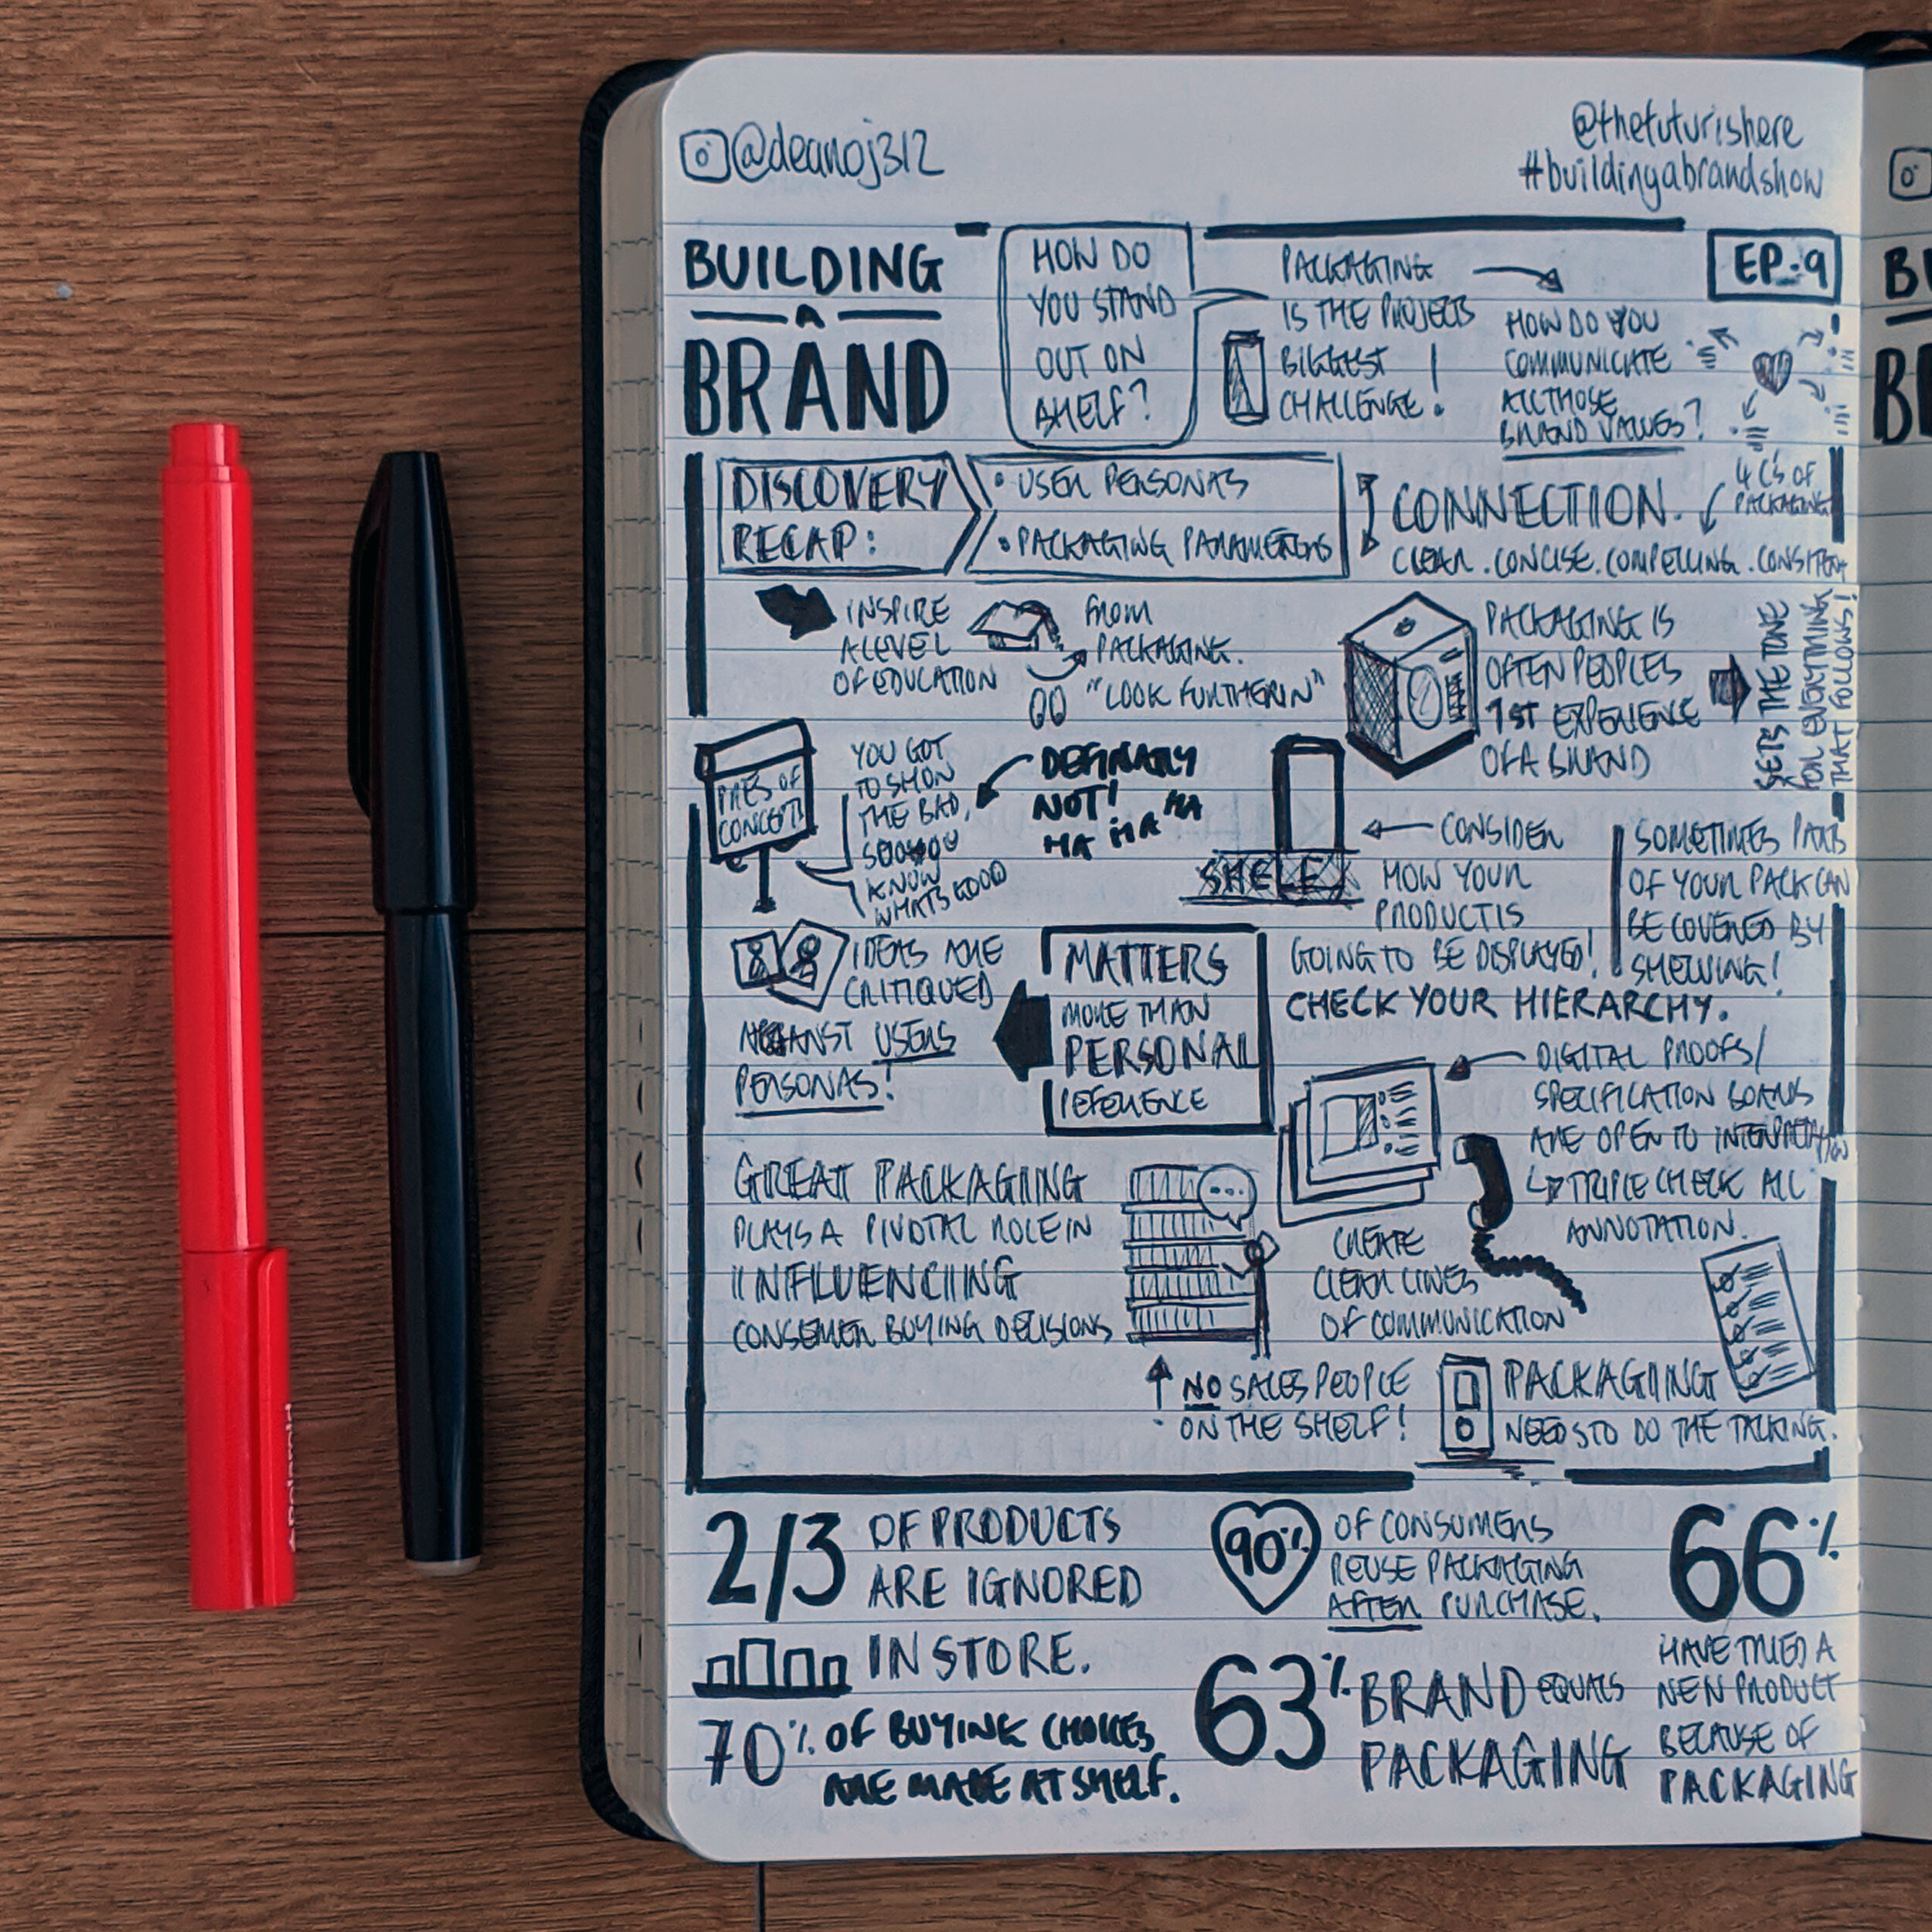 @deanoj312
@thefuturishere
#buildingabrandshow
BUILDING
A
BRAND
HOW DO
YOU STAND
OUT ON
SHELF?
PACKAGING
IS THE PROJECTS
BIGGEST
CHALLENGE!
HOW DO YOU
COMMUNICATE
ALL THOSE
BRAND VALUES?
EP.9
DISCOVERY
RECAP:
• USER PERSONAS
• PACKAGING PARAMETERS
CONNECTION.
4 C'S OF
PACKAGING
CLEAR. CONCISE. COMPELLING. CONSISTENT
INSPIRE
A LEVEL
OF EDUCATION
FROM
PACKAGING.
"LOOK FURTHER IN"
PACKAGING IS
OFTEN PEOPLES
1ST EXPERIENCE
OF A BRAND
SETS THE TONE
FOR EVERYTHING
THAT FOLLOWS!
PRES OF
CONCEPTS
YOU GOT
TO SHOW
THE BAD,
SO YOU
KNOW
WHATS GOOD
DEFINATLY
NOT!
HA HA HA
SHELF
CONSIDER
HOW YOUR
PRODUCT IS
GOING TO BE DISPLAYED!
SOMETIMES PARTS
OF YOUR PACK CAN
BE COVERED BY
SHELVING!
CHECK YOUR HIERARCHY.
IDEAS ARE
CRITIQUED
AGAINST USERS
PERSONAS!
MATTERS
MORE THAN
PERSONAL
PEFERENCE
DIGITAL PROOFS/
SPECIFICATION BOARDS
ARE OPEN TO INTERPRETATION
TRIPLE CHECK ALL
ANNOTATION.
GREAT PACKAGING
PLAYS A PIVOTAL ROLE IN
INFLUENCIING
CONSEMER BUYING DECISIONS
CREATE
CLEAR LINES
OF COMMUNICATION
NO SALES PEOPLE
ON THE SHELF!
PACKAGIING
NEEDS TO DO THE TALKING.
2/3 OF PRODUCTS
ARE IGNORED
IN STORE.
90% OF CONSUMERS
REUSE PACKAGING
AFTER PURCHASE.
66%
HAVE TRIED A
NEW PRODUCT
BECAUSE OF
PACKAGING
70% OF BUYING CHOICES
ARE MADE AT SHELF.
63% BRAND EQUALS
PACKAGING